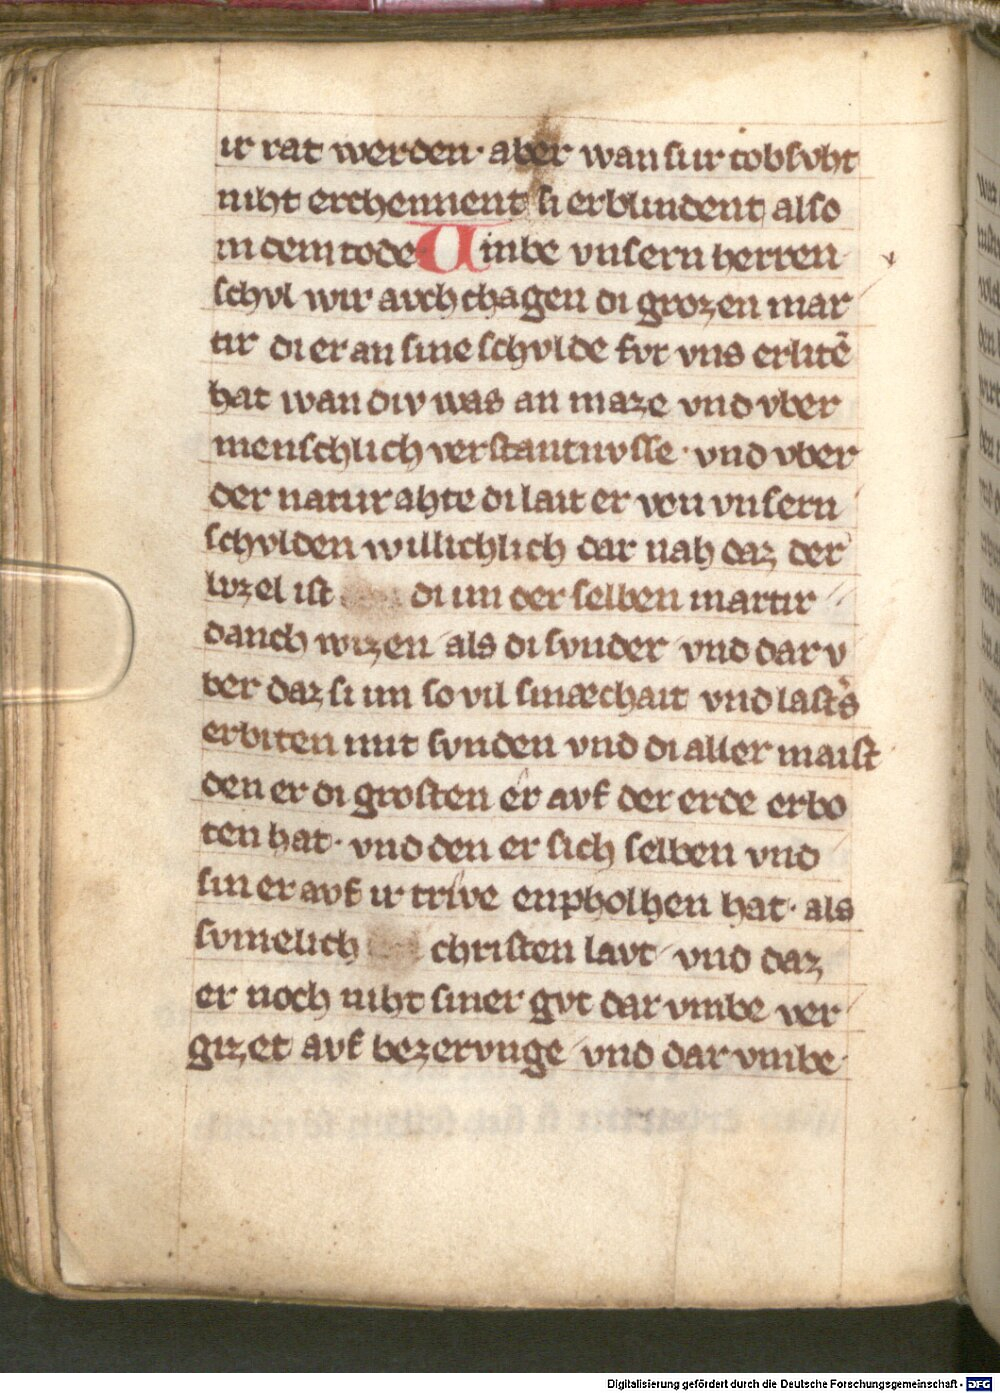 ir rat werden· aber wan si ir tobsvht
niht erchennent si erblindent also
in dem tode Umbe vnsern herren
schvl wir avch chagen di grozen mar
tir di er an sine schvlde fvr vns erlitē
hat wan div was an maze vnd vber
menschlich verstantnvsse · vnd vber
der natur ahte di lait er von vnsern
schvlden willichlich dar nah daz der
lvzel ist di im der selben martir
danch wizen als di svnder vnd dar v
ber daz si im so vil smæchait vnd lasts
erbiten mit svnden vnd di aller maist
den er di grosten er avf der erde erbo
ten hat· vnd den er sich selben vnd
sin er avf ir trive enpholhen hat· als
svmelich christen lavt vnd daz
er noch niht siner gvt dar vmbe ver
gizet avf bezervnge vnd dar vmbe·
Digitalisierung gefördert durch die Deutsche Forschungsgemeinschaft - DFG